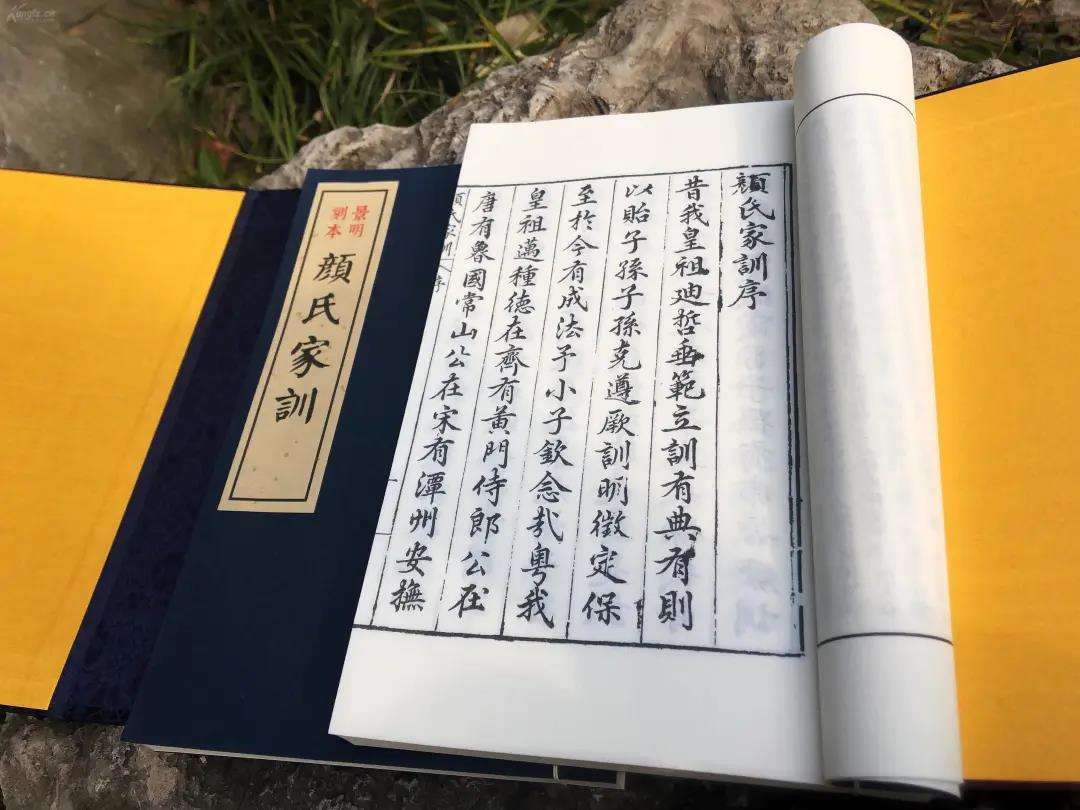 顔氏家訓序
昔我皇祖迪哲垂範立訓有典有則
以貽子孫子孫克遵厥訓明徵定保
至於今有成法予小子欽念哉粤我
皇祖邁種德在齊有黃門侍郎公在
唐有魯國常山公在宋有潭州安撫
顔氏家訓 序
景明
刻本
顔氏家訓
Kongfz.cn